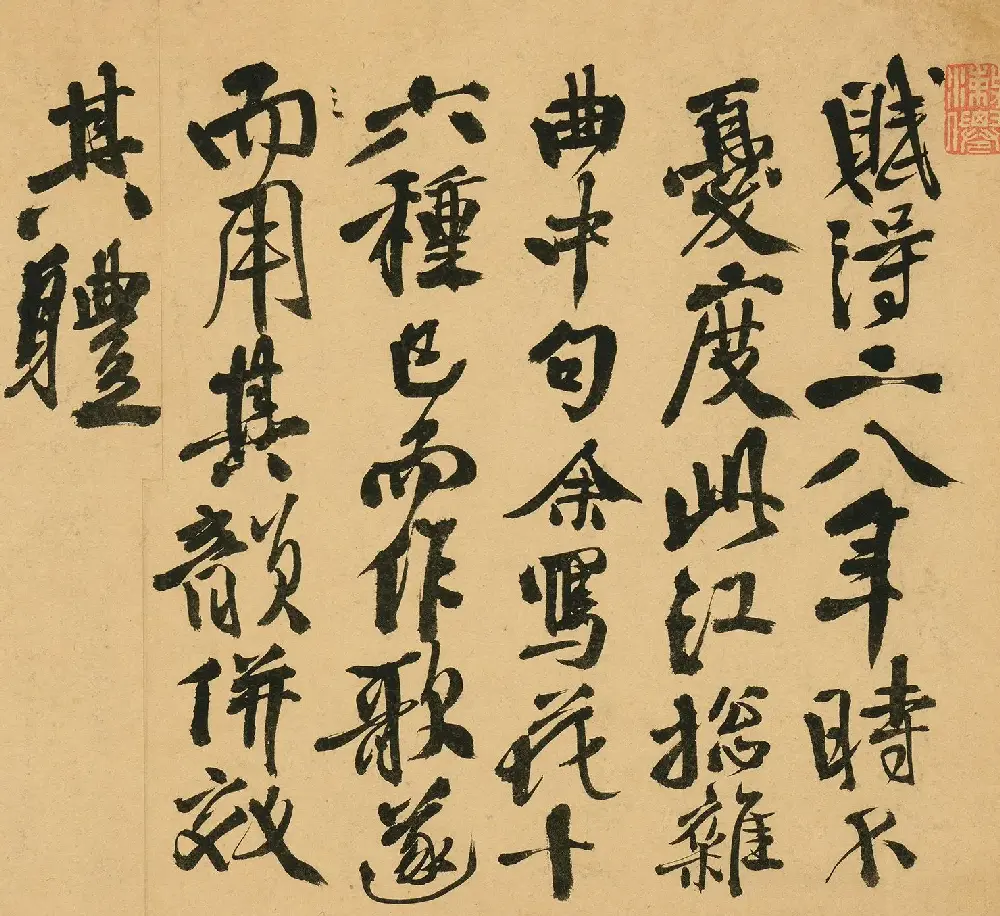 賦得二八年時不
憂度此江揔雜
曲中句余寫花十
六種已而作歌遂
而用其韻併效
其體